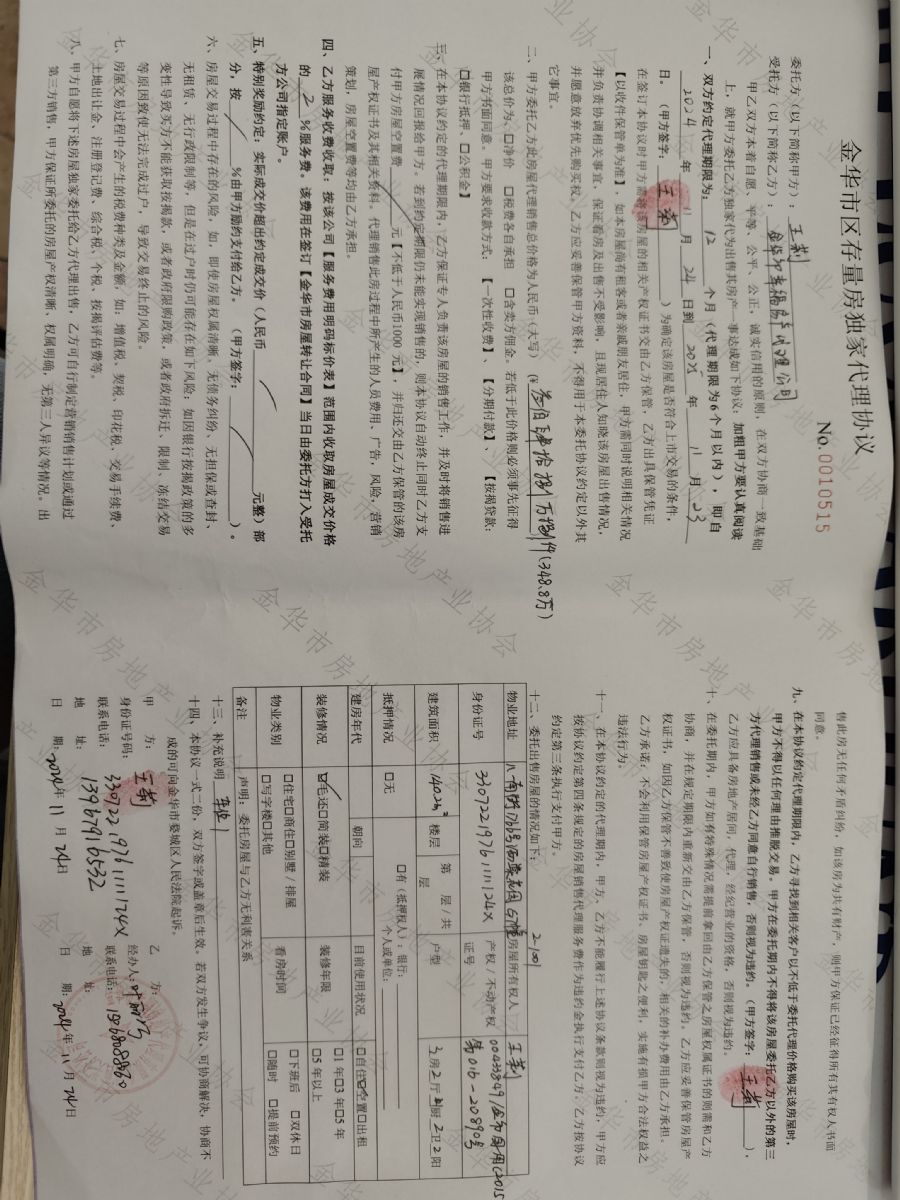 金华市区存量房独家代理协议
No.0010515
委托方（以下简称甲方）：王莉
受托方（以下简称乙方）：
甲乙双方本着自愿、平等、公平、公正，诚实信用的原则，在双方协商一致基础
上，就甲方委托乙方独家代为出售其房产一事达成如下协议：加粗甲方要认真阅读
一、双方约定代理期限为： 12 个月（代理期限为6个月以内），即自
2024 年 11 月 24 日到 2025 年 11 月 23
日。（甲方签字： 王莉 ）为确定该房屋是否符合上市交易的条件，
在签订本协议时甲方需将该房屋的相关产权证书交由乙方保管，乙方出具保管凭证
【以收件保管单为准】，如本房屋尚有租客或者亲戚朋友居住，甲方需同时说明相关情况
并负责协调相关事宜，保证看房及出售不受影响，且现居住人知晓该房屋出售情况，
并愿意放弃优先购买权。乙方应妥善保管甲方资料，不得用于本委托协议约定以外其
它事宜。
二、甲方委托乙方此房屋代理销售总价格为人民币（大写）（¥ 叁佰肆拾捌万捌仟（348.8万）
该总价为：□净价 □税费各自承担 □含卖方佣金。若低于此价格则必须事先征得
甲方书面同意。甲方要求收款方式：【一次性收费】、【分期付款】、【按揭贷款：
□银行抵押、□公积金】
三、在本协议约定的代理期限内，乙方保证专人负责该房屋的销售工作，并及时将销售进
展情况回报给甲方。若到约定期限仍未能实现销售的，则本协议自动终止同时乙方支
付甲方房屋空置费 元【不低于人民币1000元】，并归还交由乙方保管的该房
屋产权证书及其相关资料。代理销售此房过程中所产生的人员费用、广告，风险，营销
策划，房屋空置费等均由乙方承担。
四、乙方服务收费收取：按该公司【服务费用明码标价表】范围内收取房屋成交价格
的 2 %服务费，该费用在签订【金华市房屋转让合同】当日由委托方打入受托
方公司指定账户。
五、特别奖励约定：实际成交价超出约定成交价（人民币 元整）部
分，按 %由甲方励约支付给乙方。（甲方签字： ）。
六、房屋交易过程中存在的风险，如，即使房屋权属清晰、无债务纠纷、无担保或查封、
无租赁、无行政限制等，但是在过户时仍可能存在如下风险：如因银行按揭政策的多
变性导致买方不能获取按揭款，或者政府限购政策，或者政府拆迁、限制、冻结交易
等原因致使无法完成过户，导致交易终止的风险。
七、房屋交易过程中会产生的税费种类及金额，如：增值税、契税、印花税、交易手续费、
土地出让金、注册登记费、综合税、个税、按揭评估费等。
八、甲方自愿将下述房屋独家委托给乙方代理出售，乙方可自行制定营销销售计划或通过
第三方销售，甲方保证所委托的房屋产权清晰，权属明确，无第三人异议等情况。出
售此房无任何矛盾纠纷，如该房为共有财产，则甲方保证已经征得所有共有权人书面
同意。
九、在本协议约定代理期限内，乙方寻找到相关客户以不低于委托代理价格购买该房屋时，
甲方不得以任何理由推脱交易。甲方在委托期内不得将该房屋委托乙方以外的第三
方代理销售或未经乙方同意自行销售，否则视为违约。（甲方签字： 王莉 ），
乙方应具备房地产居间，代理、经纪营业的资格，否则视为违约。
十、在委托期内，甲方如有特殊情况需提前拿回由乙方保管之房屋权属证书的则需和乙方
协商，并在规定期限内重新交由乙方保管，否则视为违约。乙方应妥善保管房屋产
权证书，如因乙方保管不善致使房屋产权证遗失的，相关的补办费用由乙方承担。
乙方承诺，不会利用保管房屋产权证书、房屋钥匙之便利，实施有损甲方合法权益之
违法行为。
十一、在本协议约定的代理期内，甲方、乙方不能履行上述协议条款则视为违约，甲方应
按协议约定第四条规定的房屋销售代理服务费作为违约金执行支付乙方，乙方按协议
约定第三条执行支付甲方。
十二、委托出售房屋的情况如下： 2-1001
物业地址 房屋所有权人 王莉
身份证号 33072219761111124X 产权/不动产权证号
建筑面积 140.26 楼层 第 层/共 层 户型 3房2厅1厨2卫2阳
抵押情况 □无 □有（抵押权人）：银行： 个人或单位：
建房年代 朝向 目前使用状况 □自住☑空置□出租
装修情况 ☑毛还□简装□精装 装修年限 □1年□3年□5年 □5年以上
物业类别 □住宅□商住□别墅／排屋 □写字楼□其他 看房时间 □下班后 □双休日 □随时 □提前预约
备注 声明：委托房屋与乙方无利害关系
十三、补充说明 车位1
十四、本协议一式二份，双方签字或盖章后生效，若双方发生争议，可协商解决，协商不
成的可向金华市婺城区人民法院起诉。
甲 方： 王莉
身份证号码：33072219761111124X
联系电话：13967916532
地 址：
日 期：2024年 11 月 24日
乙 方：
经办人：
联系电话：15868088860
地 址：
日 期：2024年 11 月 24日
金华市房地产业协会